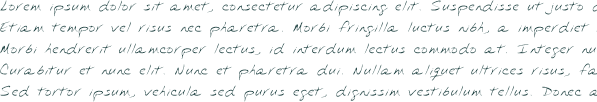 Lorem ipsum dolor sit amet, consectetur adipiscing elit. Suspendisse ut justo
Etiam tempor vel risus nec pharetra. Morbi fringilla luctus nibh, a imperdiet
Morbi hendrerit ullamcorper lectus, id interdum lectus commodo at. Integer
Curabitur et nunc elit. Nunc et pharetra dui. Nullam aliquet ultrices risus,
Sed tortor ipsum, vehicula sed purus eget, dignissim vestibulum tellus. Donec a